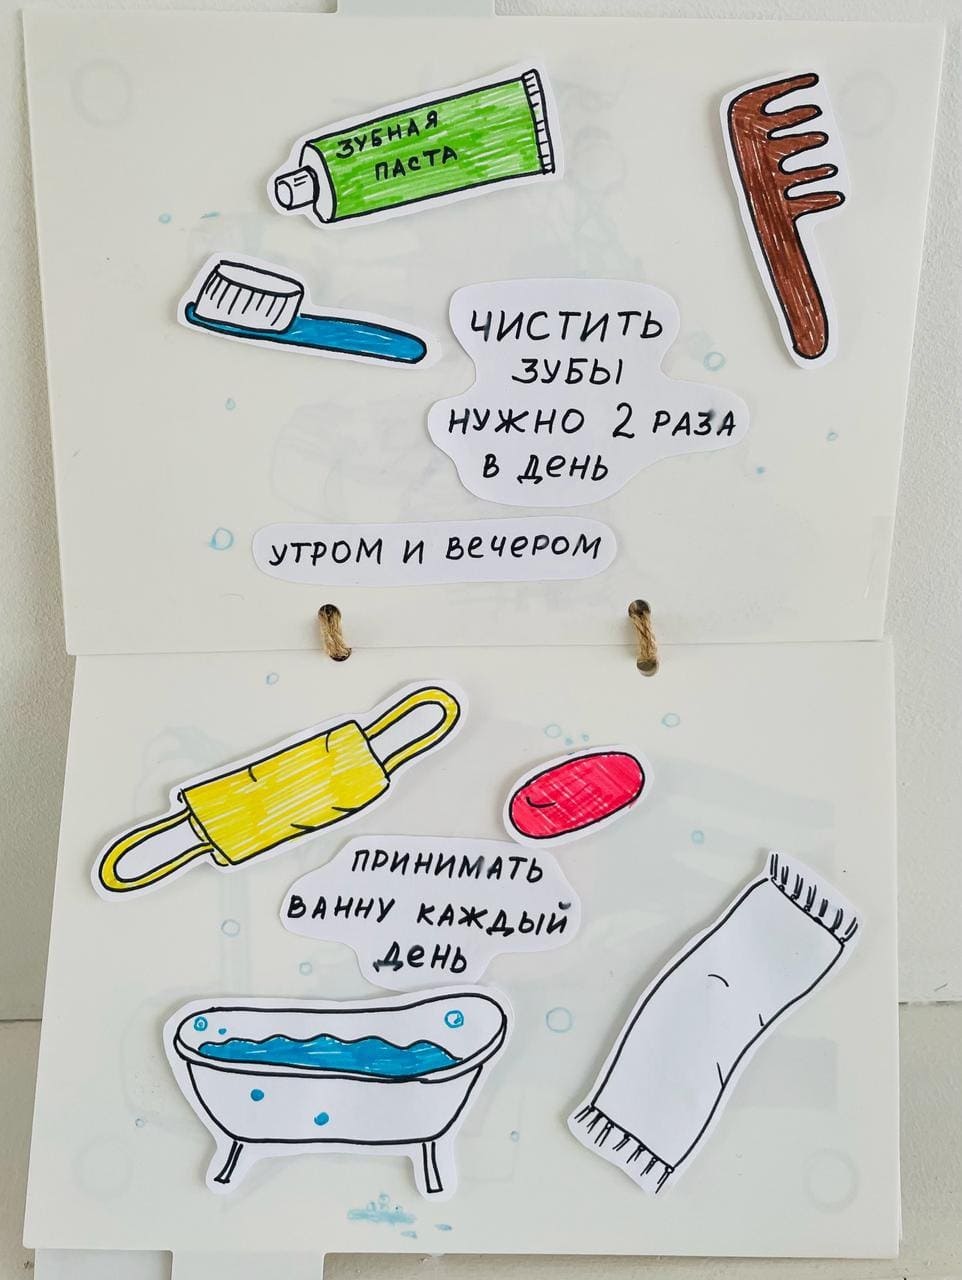 ЗУБНАЯ
ПАСТА
ЧИСТИТЬ
ЗУБЫ
НУЖНО 2 РАЗА
В ДЕНЬ
УТРОМ И ВЕЧЕРОМ
ПРИНИМАТЬ
ВАННУ КАЖДЫЙ
ДЕНЬ